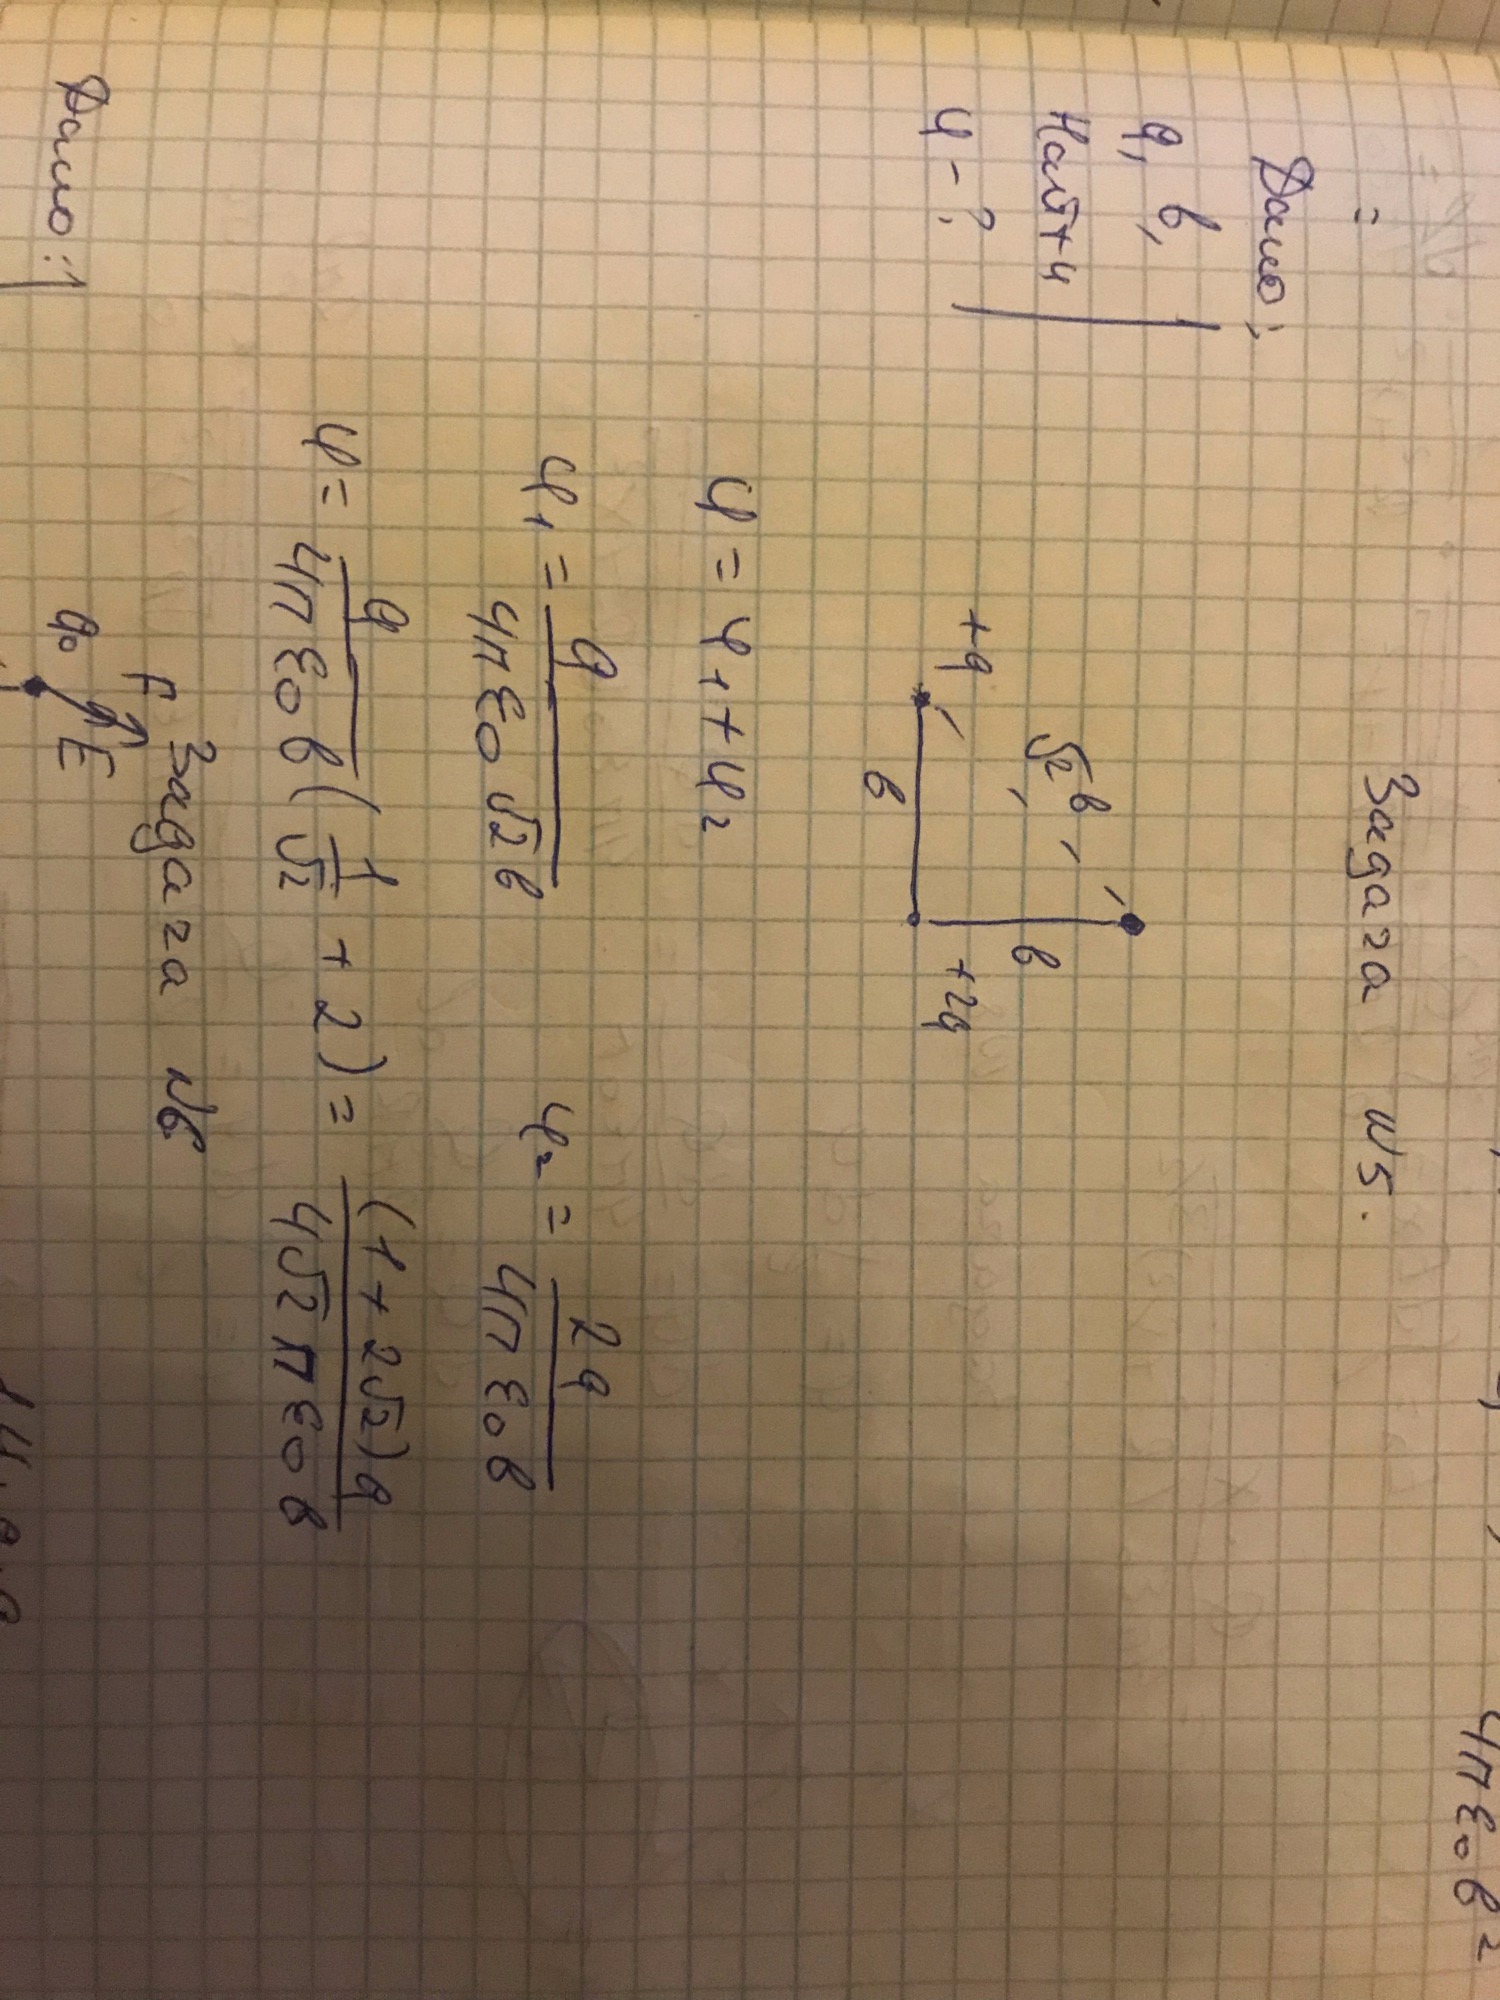 4π ε₀ в²
Задача №5.
=
Дано:
q, в,
Найти
φ - ?
√2 в
в
+q
+2q
в
φ = φ₁ + φ₂
φ₁ = q / (4π ε₀ √2 в)    φ₂ = 2q / (4π ε₀ в)
φ = q / (4π ε₀ в) (1/√2 + 2) = (1 + 2√2) q / (4√2 π ε₀ в)
Задача №6
F
E
q₀
Дано: